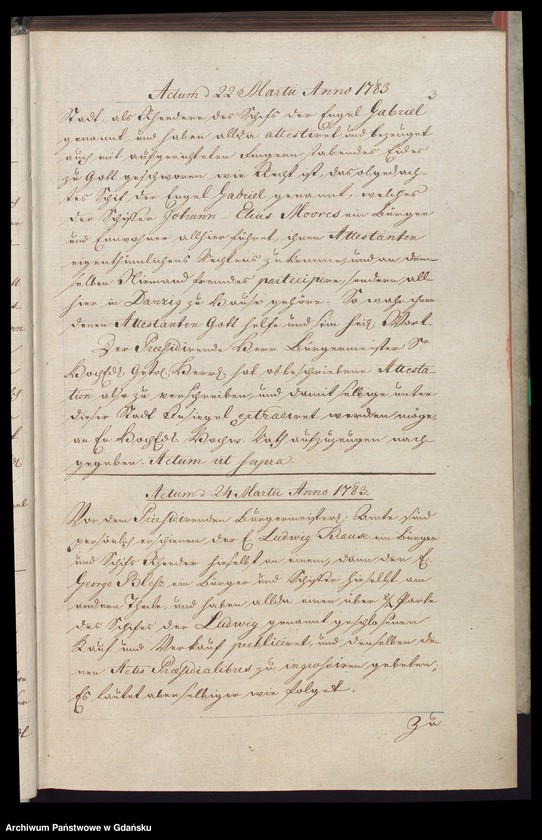 Actum d 22 Martii Anno 1783
3
Stadt, als Rhendere des Schifs der Engel Gabriel
genannt, und haben allda attestiret und bezeuget
auch mit aufgerichteten Fingern stabendes Eides
zu Gott geschworen wie Recht ist, das obgedach-
tes Schif der Engel Gabriel genannt, welches
der Schiffer Johann Elias Moores ein Bürger
und Einwohner allhier führet, ihnen Attestanten
eigenthümlichens Rechtens zukomme, und an dem-
selben Niemand fremdes participire, sondern all-
hier in Danzig zu Hause gehöre. So wahr ihnen
denen Attestanten Gott helfe und sein heil: Wort.
Der Præsidirende Herr Bürgermeister Sr
HochEdl. Gestr. Herrl. hat obbeschriebene Attesta-
tion also zu verschreiben, und damit selbige unter
dieser Stadt Insiegel extradiret werden möge,
an En HochEdl. Hochw. Rath aufzuzeugen nach-
gegeben. Actum ut supra.
Actum d 24 Martii Anno 1783.
Vor dem Præsidirenden Bürgermeisterl: Amte sind
persönlich erschienen der E Ludwig Krause ein Bürger
und Schifs Rheeder hieselbst an einem, dann der E.
George Bless ein Bürger und Schiffer hieselbst am
andern Theile, und haben allda einen über Parte
des Schifes der Ludwig genannt geschlossenen
Kauf und Verkauf publiciret, und denselben de-
nen Actis Præsidialibus zu ingrossiren gebeten;
Es lautet aber selbiger wie folget.
Zu
Archiwum Państwowe w Gdańsku